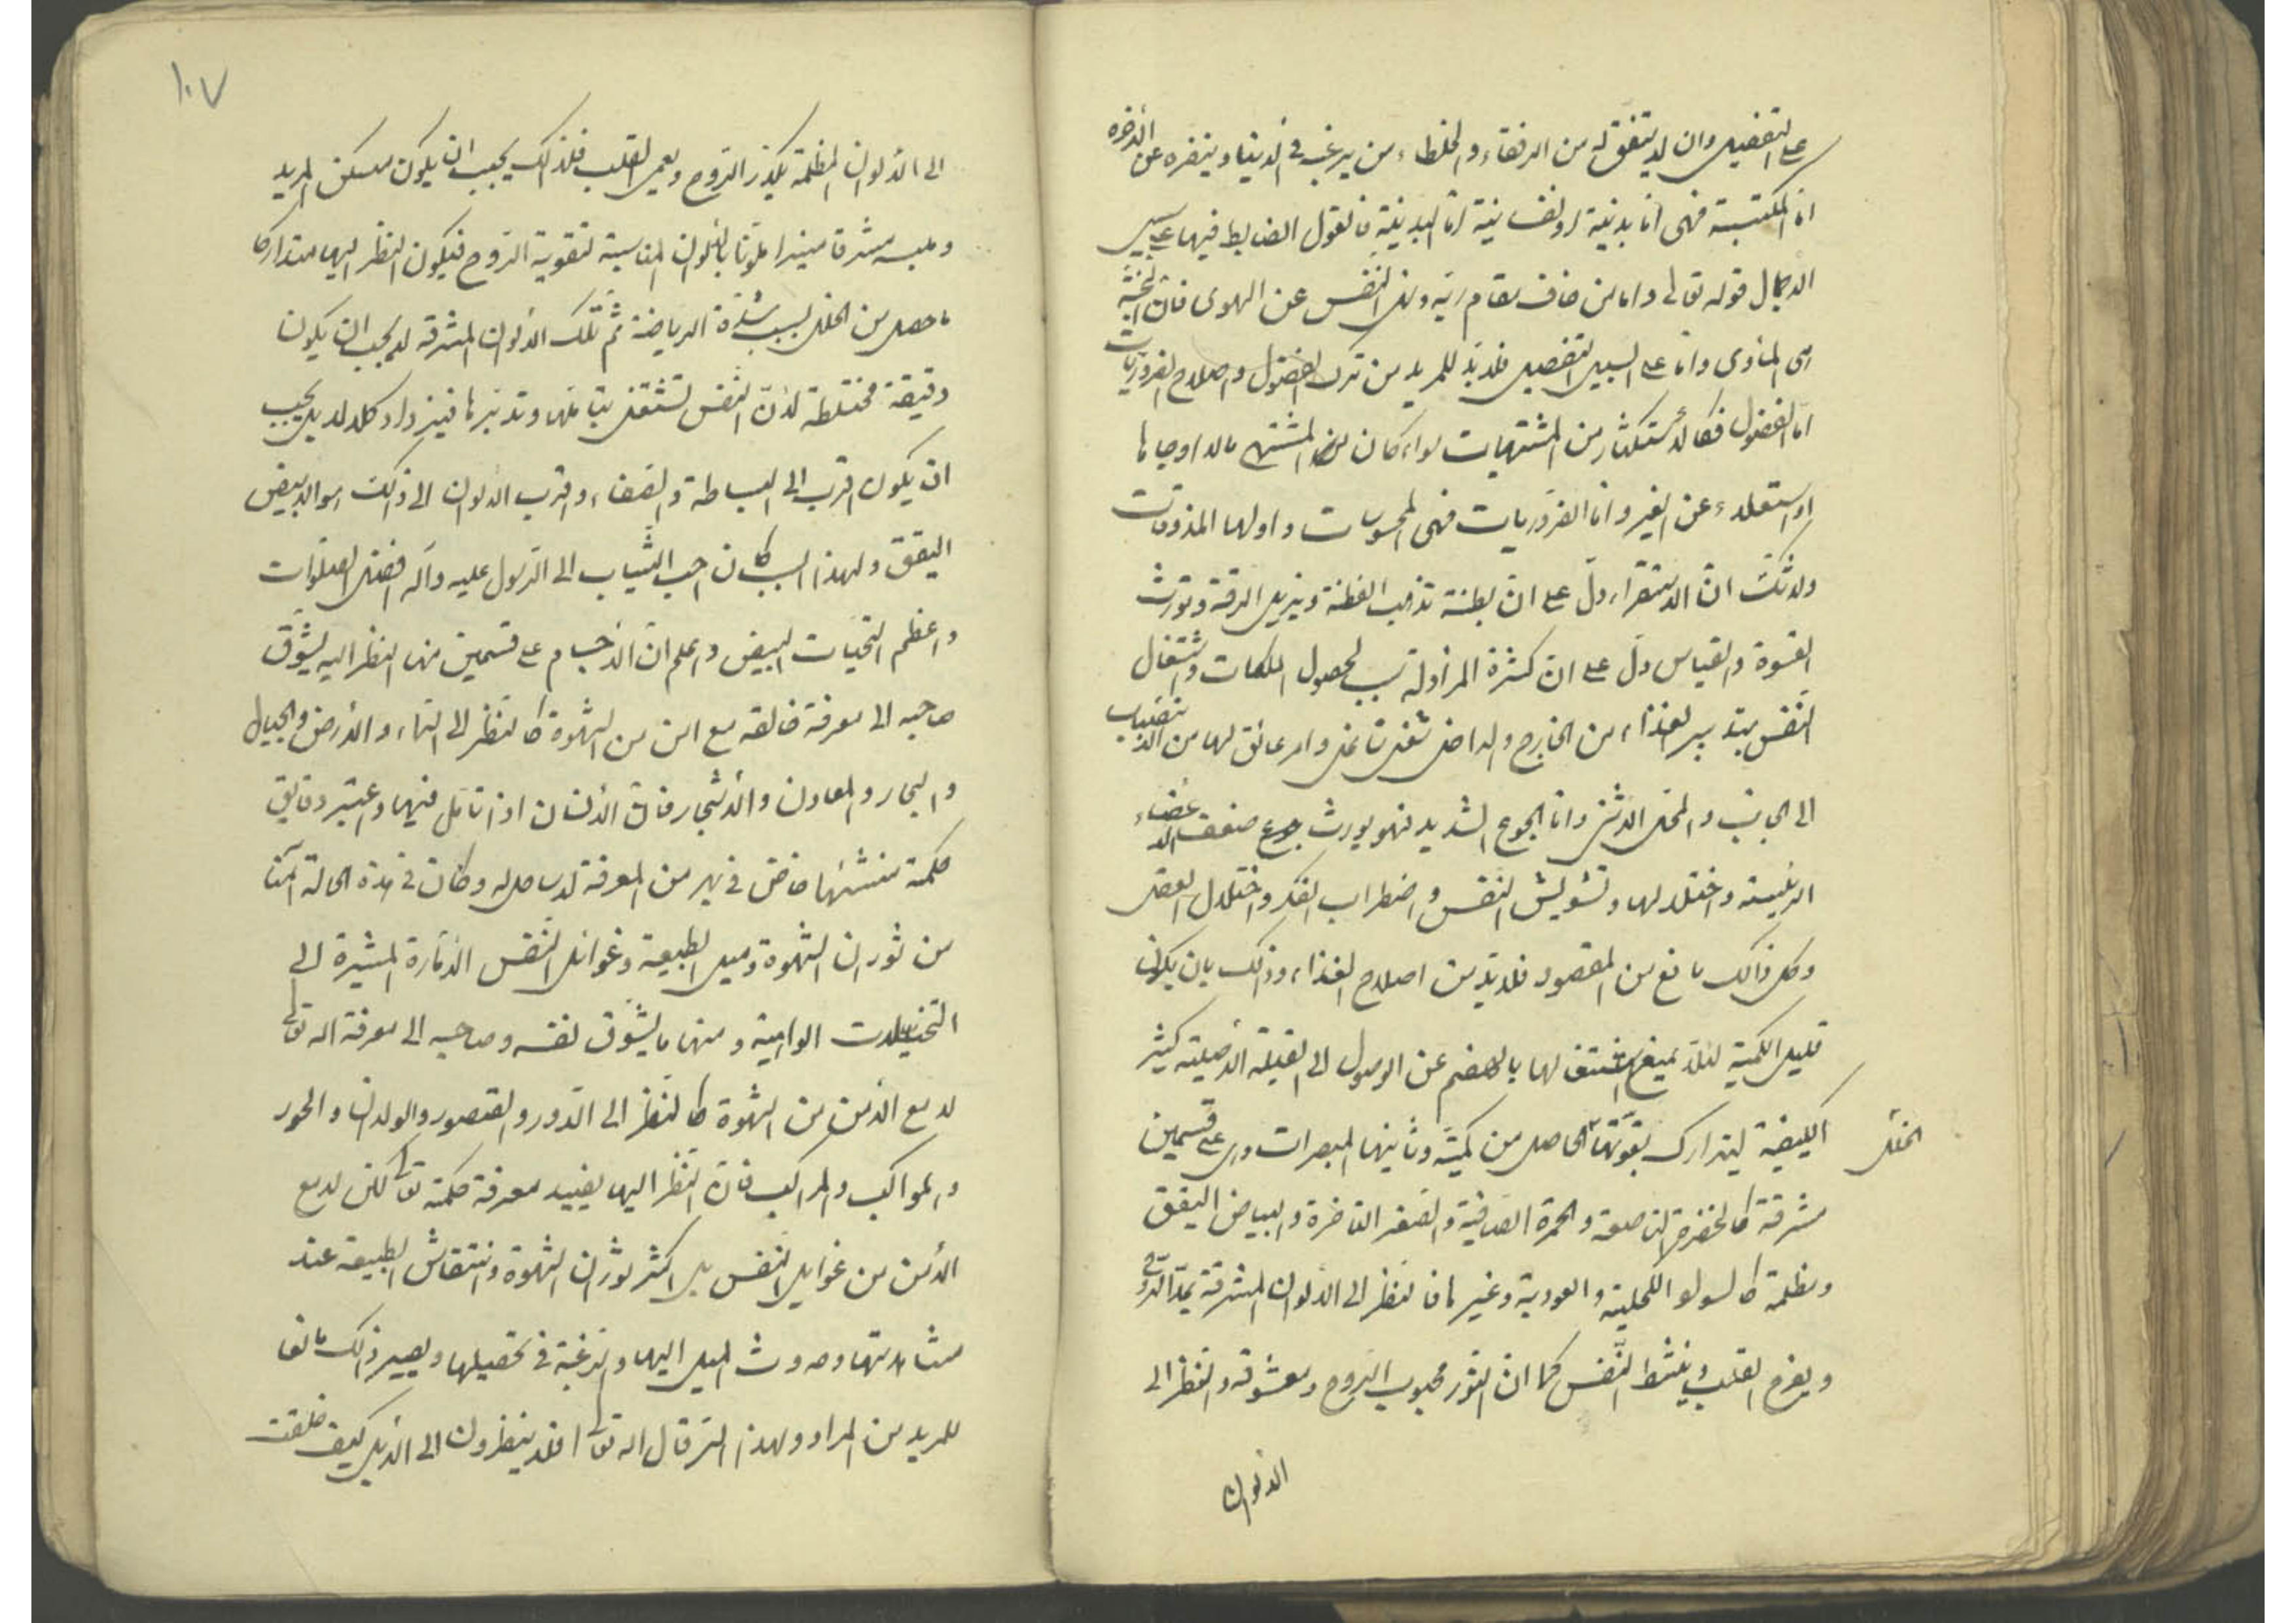 على التفصيل وان لا يتفق له من الرفقاء والخلطاء من يرغبه في الدنيا وينفره عن الآخرة
اما المكتسبة فهى اما بدنية او نفسانية اما البدنية فالقول الضابط فيها على سبيل
الاجمال قوله تعالى واما من خاف مقام ربه ونهى النفس عن الهوى فان الجنة
هى المأوى واما على السبيل التفصيل فلا بد للمريد من ترك الفضول واصلاح الضروريات
اما الفضول فكالاستكثار من المشتهيات سواء كان المشتهى مالا او جاها
او استعلاء عن الغير واما الضروريات فهى المحسوسات واولها المذوقات
ولا شك ان الاستقراء دل على ان البطنة تذهب الفطنة ويزيل الرقة وتورث
القسوة والقياس دل على ان كثرة المزاولة سبب لحصول الملكات واشتغال
النفس بتدبير الغذاء من الخارج والداخل شغل شاغل وامر عائق لها من الانضباب
الى الجانب والمحل الاشرف واما الجوع الشديد فهو يورث ضعف الاعضاء
الرئيسة واختلالها وتشويش النفس واضطراب الفكر واختلال العقل
وكل ذالك مانع من المقصود فلا بد من اصلاح الغذاء وذلك بان يكون
قليل الكمية لئلا يمنع اشتغالها بالهضم عن الوصول الى القبلة الاصلية كثير
الكيفية ليتدارك بقوتها الخلل الحاصل من كمية وثانيها المبصرات وهى على قسمين
مشرقة كالخضرة الناصعة والحمرة الصافية والصفر الفاخرة والبياض اليقق
ومظلمة كالسواد والكحلية والعودية وغيرها فالنظر الى الالوان المشرقة يمد الروح
ويفرح القلب وينشط النفس كما ان النور محبوب الروح ومعشوقه والنظر الى
الالوان
١٠٧
الى الالوان المظلمة يكدر الروح ويعمى القلب فلذلك يجب ان يكون مسكن المريد
وملبسه مشرقا منيرا ملونا بالالوان المناسبة لتقوية الروح فيكون النظر اليها متداركا
ما حصل من الخلل بسبب شدة الرياضة ثم تلك الالوان المشرقة لا يجب ان يكون
دقيقة مختلطة لان النفس تشتغل بتأملها وتدبرها فيزداد كلالا بل يجب
ان يكون اقرب الى البساطة والصفاء واقرب الالوان الى ذلك هو الابيض
اليقق ولهذا السبب كان احب الثياب الى الرسول عليه وآله افضل الصلوات
واعظم التحيات البيض واعلم ان الاجسام على قسمين منها النظر اليه يشوق
صاحبه الى معرفة خالقه مع امن من الشهوة كالنظر الى السماء والارض والجبال
والبحار والمعادن والاشجار فان الانسان اذا تأمل فيها واعتبر دقايق
حكمة منشئها خاض في بحر من المعرفة لا ساحل له وكان في هذه الحالة آمنا
من ثوران الشهوة وميل الطبيعة وغوائل النفس الامارة المشيرة الى
التخييلات الواهية ومنها ما يشوق نفسه وصاحبه الى معرفة الله تعالى
لا مع الامن من الشهوة كالنظر الى الدور والقصور والولدان والحور
والمواكب والمراكب فان النظر اليها يفيد معرفة حكمة تعالى لكن لا مع
الأمن من غوايل النفس بل اكثر لثوران الشهوة وانتقاش الطبيعة عند
مشاهدتها وحدوث الميل اليها والرغبة في تحصيلها ويصير ذالك مانعا
للمريد من المراد ولهذا السر قال الله تعالى افلا ينظرون الى الابل كيف خلقت